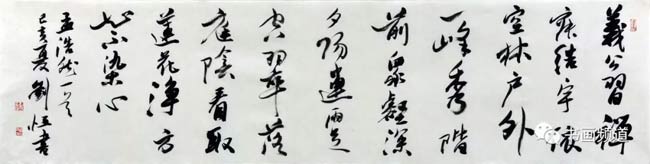 義公習禪
寂結宇依
空林户外
一峰秀階
前衆壑深
夕陽連雨足
空翠落
庭陰看取
蓮花淨方
知不染心
孟浩然一首
己亥夏劉恒書
书画频道